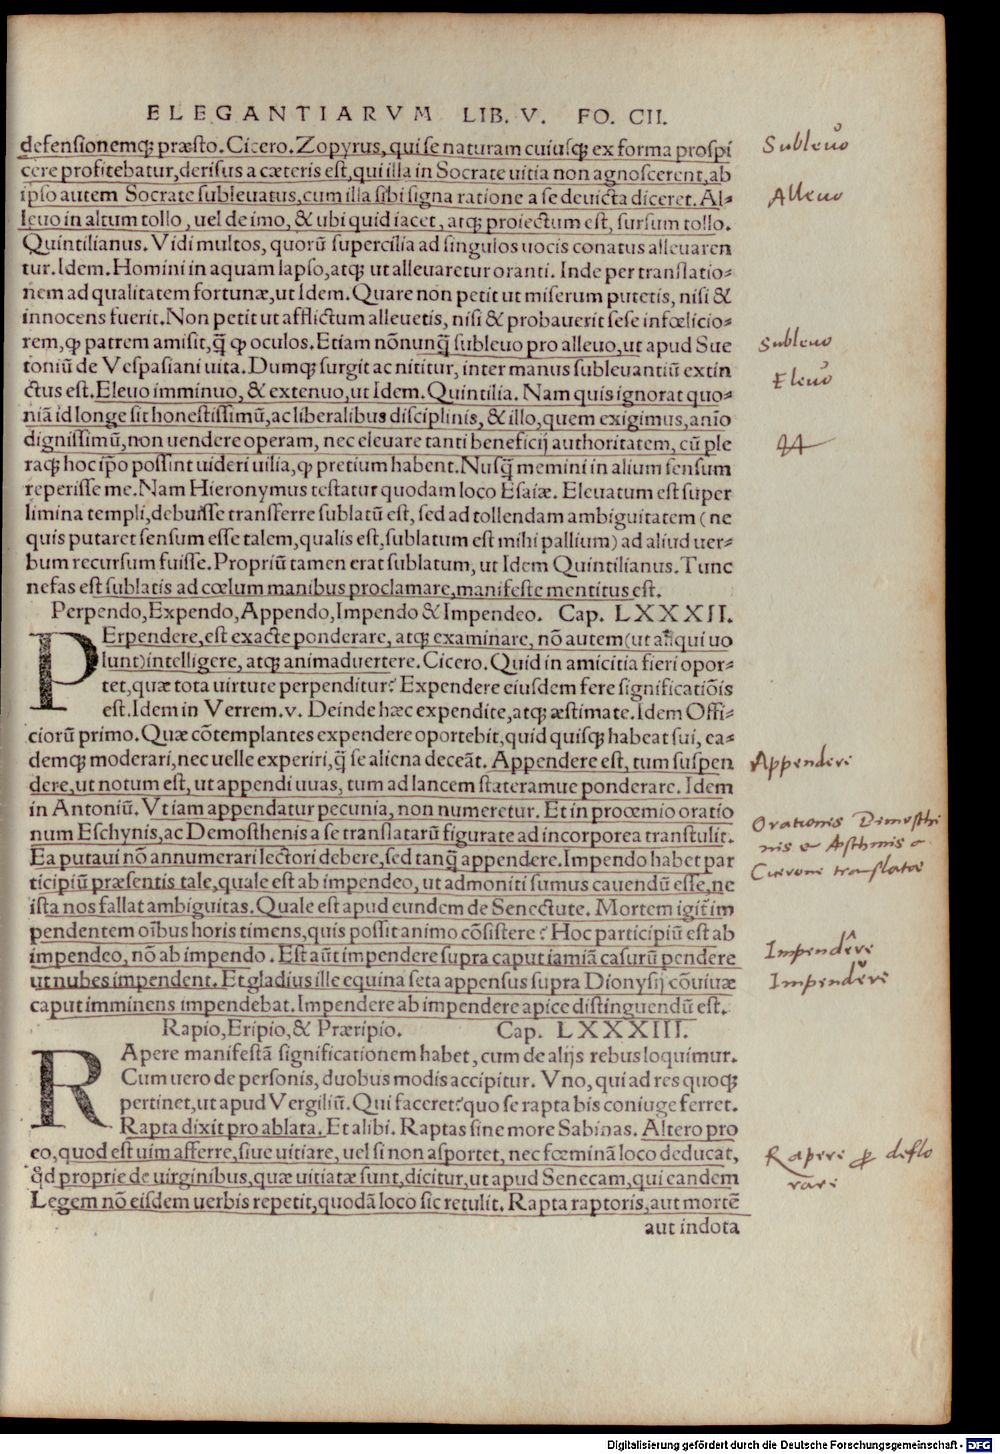 ELEGANTIARVM LIB. V. FO. CII.
defensionemq; præsto. Cicero. Zopyrus, qui se naturam cuiusq; ex forma prospi
cere profitebatur, derisus a cæteris est, qui illa in Socrate uitia non agnoscerent, ab
ipso autem Socrate subleuatus, cum illa sibi signa ratione a se deuicta diceret. Al-
leuo in altum tollo, uel de imo, & ubi quid iacet, atq; proiectum est, sursum tollo.
Quintilianus. Vidi multos, quorū supercilia ad singulos uocis conatus alleuaren
tur. Idem. Homini in aquam lapso, atq; ut alleuaretur oranti. Inde per translatio-
nem ad qualitatem fortunæ, ut Idem. Quare non petit ut miserum putetis, nisi &
innocens fuerit. Non petit ut afflictum alleuetis, nisi & probauerit sese infœlicio-
rem, ꝙ patrem amisit, q̄ ꝙ oculos. Etiam nōnunq̄ subleuo pro alleuo, ut apud Sue
toniū de Vespasiani uita. Dumq; surgit ac nititur, inter manus subleuantiū extin
ctus est. Eleuo imminuo, & extenuo, ut Idem. Quintilia. Nam quis ignorat quo-
niā id longe sit honestissimū, ac liberalibus disciplinis, & illo, quem exigimus, anīo
dignissimū, non uendere operam, nec eleuare tanti beneficij authoritatem, cū ple
raq; hoc ip̄o possint uideri uilia, ꝙ pretium habent. Nusq̄ memini in alium sensum
reperisse me. Nam Hieronymus testatur quodam loco Esaiæ. Eleuatum est super
limina templi, debuisse transferre sublatū est, sed ad tollendam ambiguitatem (ne
quis putaret sensum esse talem, qualis est, sublatum est mihi pallium) ad aliud uer-
bum recursum fuisse. Propriū tamen erat sublatum, ut Idem Quintilianus. Tunc
nefas est sublatis ad cœlum manibus proclamare, manifeste mentitus est.
Perpendo, Expendo, Appendo, Impendo & Impendeo. Cap. LXXXII.
PErpendere, est exacte ponderare, atq; examinare, nō autem (ut aliqui uo
lunt) intelligere, atq; animaduertere. Cicero. Quid in amicitia fieri opor-
tet, quæ tota uirtute perpenditur? Expendere eiusdem fere significatiōis
est. Idem in Verrem. v. Deinde hæc expendite, atq; æstimate. Idem Offi-
ciorū primo. Quæ cōtemplantes expendere oportebit, quid quisq; habeat sui, ea-
demq; moderari, nec uelle experiri, q̄ se aliena deceāt. Appendere est, tum suspen
dere, ut notum est, ut appendi uuas, tum ad lancem stateramue ponderare. Idem
in Antoniū. Vt iam appendatur pecunia, non numeretur. Et in proœmio oratio
num Eschynis, ac Demosthenis a se translatarū figurate ad incorporea transtulit.
Ea putaui nō annumerari lectori debere, sed tanq̄ appendere. Impendo habet par
ticipiū præsentis tale, quale est ab impendeo, ut admoniti sumus cauendū esse, ne
ista nos fallat ambiguitas. Quale est apud eundem de Senectute. Mortem igiť im
pendentem oībus horis timens, quis possit animo cōsistere? Hoc participiū est ab
impendeo, nō ab impendo. Est aūt impendere supra caput iamiā casurū pendēre
ut nubes impendent. Et gladius ille equina seta appensus supra Dionysij cōuiuæ
caput imminens impendebat. Impendere ab impendere apice distinguendū est.
Rapio, Eripio, & Præripio. Cap. LXXXIII.
RApere manifestā significationem habet, cum de alijs rebus loquimur.
Cum uero de personis, duobus modis accipitur. Vno, qui ad res quoq;
pertinet, ut apud Vergiliū. Qui faceret? quo se rapta bis coniuge ferret.
Rapta dixit pro ablata. Et alibi. Raptas sine more Sabinas. Altero pro
eo, quod est uim afferre, siue uitiare, uel si non asportet, nec fœminā loco deducat,
qd̄ proprie de uirginibus, quæ uitiatæ sunt, dicitur, ut apud Senecam, qui eandem
Legem nō eisdem uerbis repetit, quodā loco sic retulit. Rapta raptoris, aut mortē
aut indota
Subleuo
Alleuo
Subleuo
Eleuo
Appendere
Orationis Demosthe
nis & Æsthinis a
Cicerone translatæ
Impendêre
Impendĕre
Rapere ꝓ deflo
rare
Digitalisierung gefördert durch die Deutsche Forschungsgemeinschaft - DFG